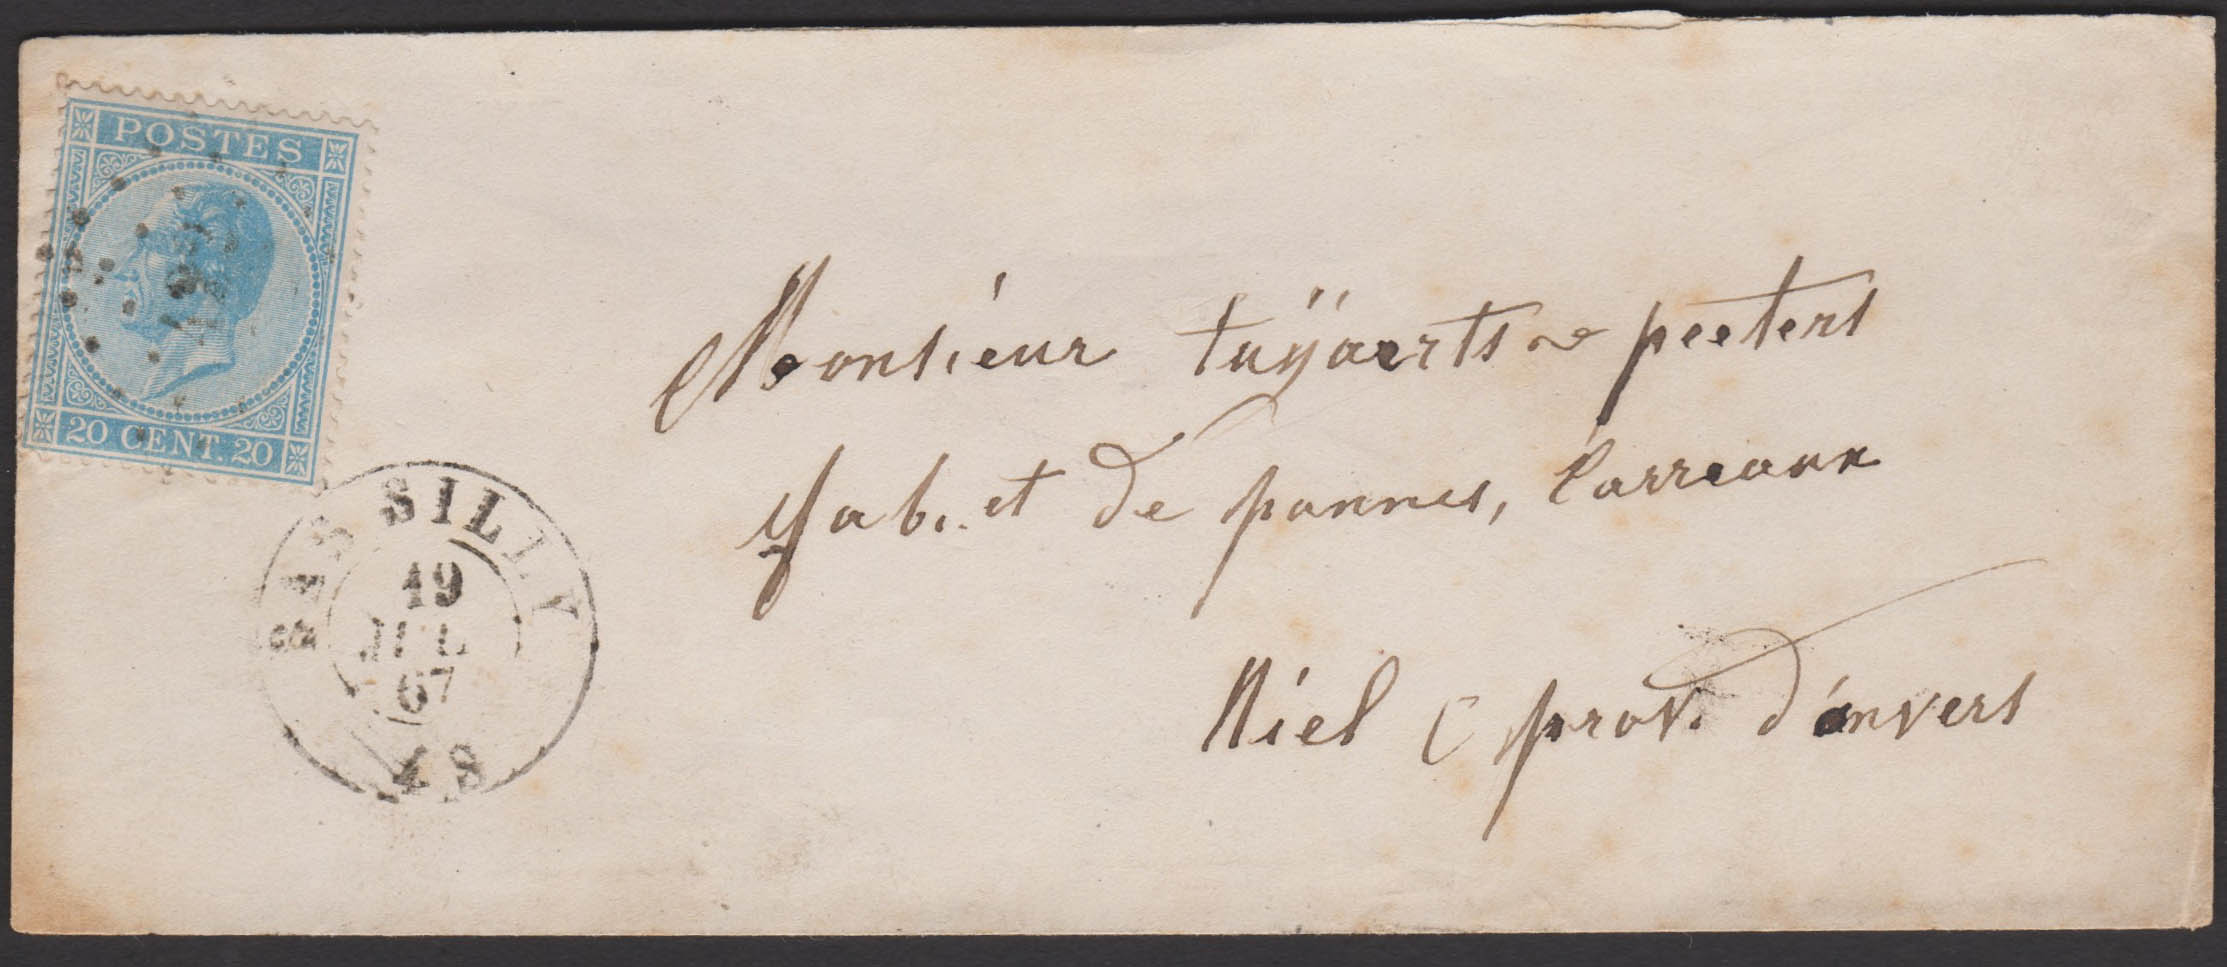 POSTES
20 CENT. 20
BAS SILLY
19
JUIL
67
8 S
Monsieur tuÿaerts peeters
fab. et de pannes, Carreaux
Niel ( prov. d'anvers